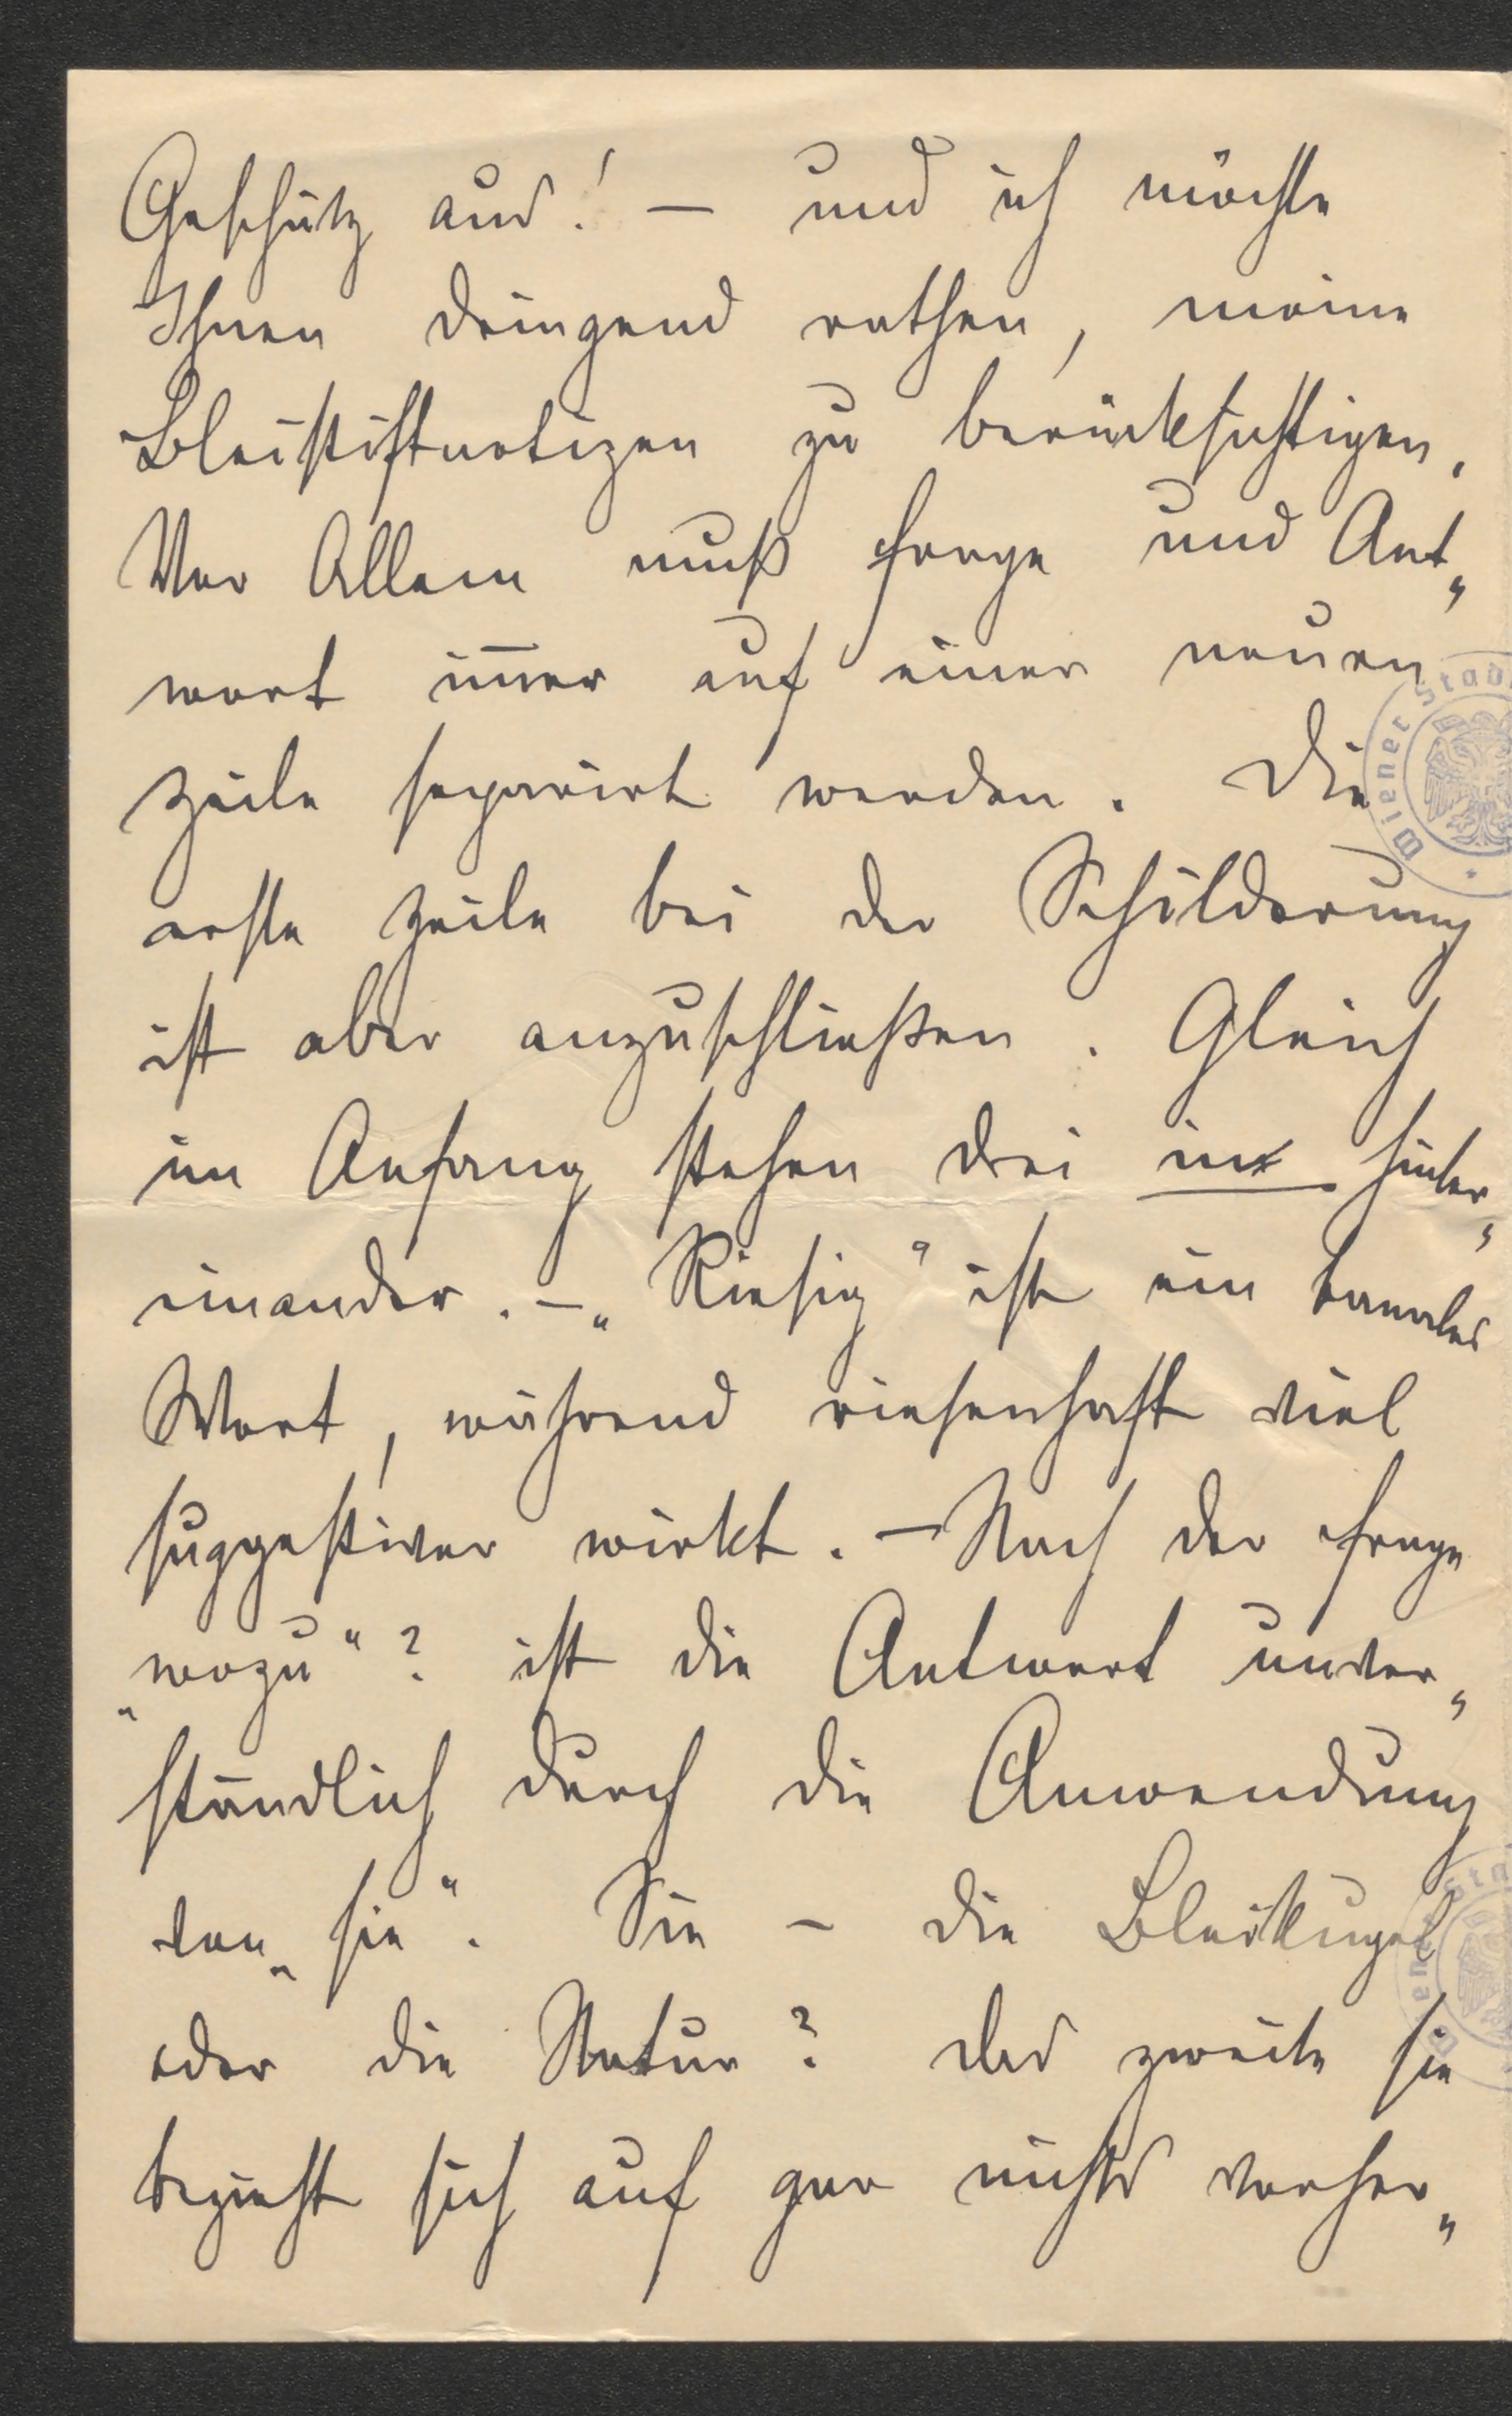 Geschütz aus! — und ich möchte
Ihnen dringend rathen, meine
Bleistiftnotizen zu berücksichtigen.
Vor Allem muß Frage und Ant„
wort im̅er auf einer neuen
Zeile separirt werden. Die
erste Zeile bei der Schilderung
ist aber anzuschließen. Gleich
im Anfang stehen drei im hinter„
einander. – „Riesig“ ist ein banales
Wort, während riesenhaft viel
suggestiver wirkt. — Nach der Frage
„wozu“? ist die Antwort unver„
ständlich durch die Anwendung
von „sie“. Sie – die Bleikugel
oder die Natur? Das zweite sie
bezieht sich auf gar nichts vorher„
Wiener Stad